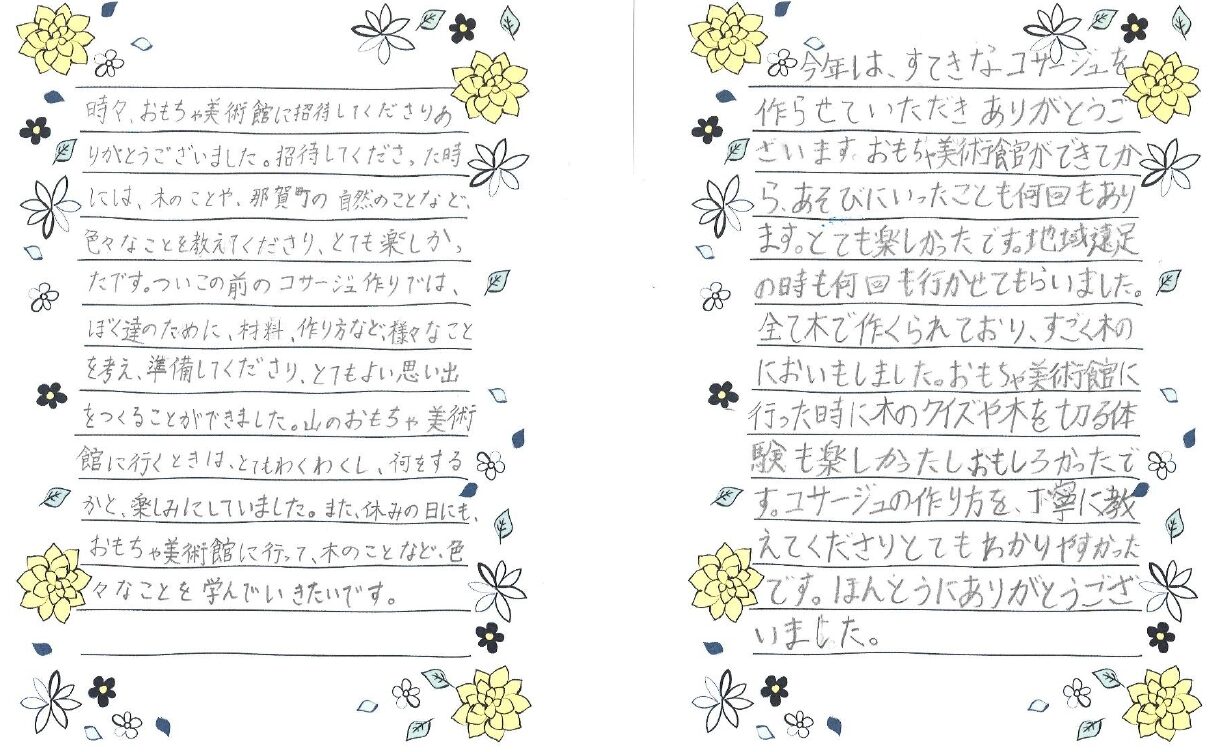 時々、おもちゃ美術館に招待してくださりあ
りがとうございました。招待してくださった時
には、木のことや、那賀町の自然のことなど、
色々なことを教えてくださり、とても楽しかっ
たです。ついこの前のコサージュ作りでは、
ぼく達のために、材料、作り方など、様々なこと
を考え、準備してくださり、とてもよい思い出
をつくることができました。山のおもちゃ美術
館に行くときは、とてもわくわくし、何をする
かと、楽しみにしていました。また、休みの日にも、
おもちゃ美術館に行って、木のことなど、色
々なことを学んでいきたいです。
今年は、すてきなコサージュを
作らせていただきありがとうご
ざいます。おもちゃ美術館ができてか
ら、あそびにいったことも何回もあり
ます。とても楽しかったです。地域遠足
の時も何回も行かせてもらいました。
全て木で作くられており、すごく木の
においもしました。おもちゃ美術館に
行った時に木のクイズや木を切る体
験も楽しかったしおもしろかったで
す。コサージュの作り方を、丁寧に教
えてくださりとてもわかりやすかった
です。ほんとうにありがとうござ
いました。